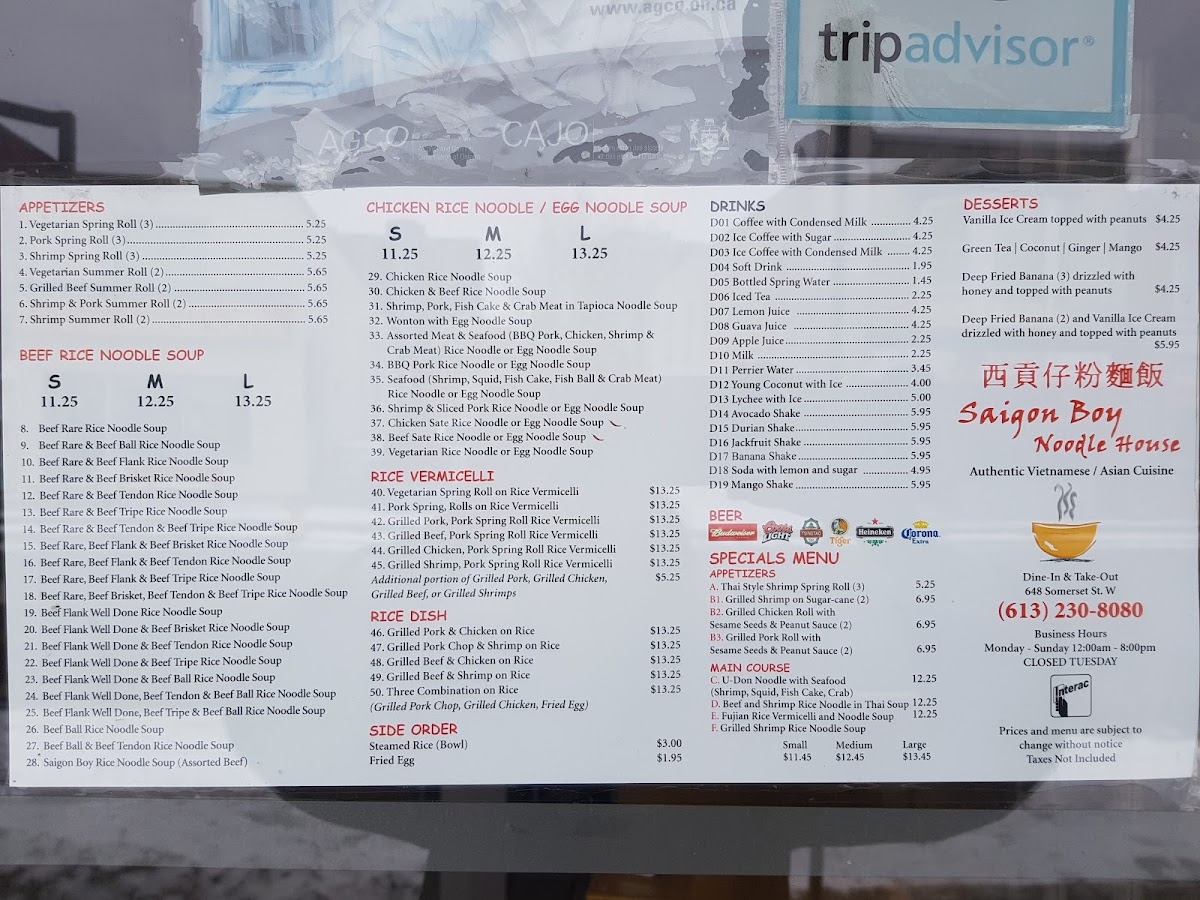 www.agco.on.ca
tripadvisor®
AGCO
CAJO
APPETIZERS
1. Vegetarian Spring Roll (3) 5.25
2. Pork Spring Roll (3) 5.25
3. Shrimp Spring Roll (3) 5.25
4. Vegetarian Summer Roll (2) 5.65
5. Grilled Beef Summer Roll (2) 5.65
6. Shrimp & Pork Summer Roll (2) 5.65
7. Shrimp Summer Roll (2) 5.65
BEEF RICE NOODLE SOUP
S M L
11.25 12.25 13.25
8. Beef Rare Rice Noodle Soup
9. Beef Rare & Beef Ball Rice Noodle Soup
10. Beef Rare & Beef Flank Rice Noodle Soup
11. Beef Rare & Beef Brisket Rice Noodle Soup
12. Beef Rare & Beef Tendon Rice Noodle Soup
13. Beef Rare & Beef Tripe Rice Noodle Soup
14. Beef Rare & Beef Tendon & Beef Tripe Rice Noodle Soup
15. Beef Rare, Beef Flank & Beef Brisket Rice Noodle Soup
16. Beef Rare, Beef Flank & Beef Tendon Rice Noodle Soup
17. Beef Rare, Beef Flank & Beef Tripe Rice Noodle Soup
18. Beef Rare, Beef Brisket, Beef Tendon & Beef Tripe Rice Noodle Soup
19. Beef Flank Well Done Rice Noodle Soup
20. Beef Flank Well Done & Beef Brisket Rice Noodle Soup
21. Beef Flank Well Done & Beef Tendon Rice Noodle Soup
22. Beef Flank Well Done & Beef Tripe Rice Noodle Soup
23. Beef Flank Well Done & Beef Ball Rice Noodle Soup
24. Beef Flank Well Done, Beef Tendon & Beef Ball Rice Noodle Soup
25. Beef Flank Well Done, Beef Tripe & Beef Ball Rice Noodle Soup
26. Beef Ball Rice Noodle Soup
27. Beef Ball & Beef Tendon Rice Noodle Soup
28. Saigon Boy Rice Noodle Soup (Assorted Beef)
CHICKEN RICE NOODLE / EGG NOODLE SOUP
S M L
11.25 12.25 13.25
29. Chicken Rice Noodle Soup
30. Chicken & Beef Rice Noodle Soup
31. Shrimp, Pork, Fish Cake & Crab Meat in Tapioca Noodle Soup
32. Wonton with Egg Noodle Soup
33. Assorted Meat & Seafood (BBQ Pork, Chicken, Shrimp &
Crab Meat) Rice Noodle or Egg Noodle Soup
34. BBQ Pork Rice Noodle or Egg Noodle Soup
35. Seafood (Shrimp, Squid, Fish Cake, Fish Ball & Crab Meat)
Rice Noodle or Egg Noodle Soup
36. Shrimp & Sliced Pork Rice Noodle or Egg Noodle Soup
37. Chicken Sate Rice Noodle or Egg Noodle Soup
38. Beef Sate Rice Noodle or Egg Noodle Soup
39. Vegetarian Rice Noodle or Egg Noodle Soup
RICE VERMICELLI
40. Vegetarian Spring Roll on Rice Vermicelli $13.25
41. Pork Spring, Rolls on Rice Vermicelli $13.25
42. Grilled Pork, Pork Spring Roll Rice Vermicelli $13.25
43. Grilled Beef, Pork Spring Roll Rice Vermicelli $13.25
44. Grilled Chicken, Pork Spring Roll Rice Vermicelli $13.25
45. Grilled Shrimp, Pork Spring Roll Rice Vermicelli $13.25
Additional portion of Grilled Pork, Grilled Chicken, $5.25
Grilled Beef, or Grilled Shrimps
RICE DISH
46. Grilled Pork & Chicken on Rice $13.25
47. Grilled Pork Chop & Shrimp on Rice $13.25
48. Grilled Beef & Chicken on Rice $13.25
49. Grilled Beef & Shrimp on Rice $13.25
50. Three Combination on Rice $13.25
(Grilled Pork Chop, Grilled Chicken, Fried Egg)
SIDE ORDER
Steamed Rice (Bowl) $3.00
Fried Egg $1.95
DRINKS
D01 Coffee with Condensed Milk 4.25
D02 Ice Coffee with Sugar 4.25
D03 Ice Coffee with Condensed Milk 4.25
D04 Soft Drink 1.95
D05 Bottled Spring Water 1.45
D06 Iced Tea 2.25
D07 Lemon Juice 4.25
D08 Guava Juice 4.25
D09 Apple Juice 2.25
D10 Milk 2.25
D11 Perrier Water 3.45
D12 Young Coconut with Ice 4.00
D13 Lychee with Ice 5.00
D14 Avocado Shake 5.95
D15 Durian Shake 5.95
D16 Jackfruit Shake 5.95
D17 Banana Shake 5.95
D18 Soda with lemon and sugar 4.95
D19 Mango Shake 5.95
BEER
Budweiser Coors LIGHT TSINGTAO Tiger Heineken Corona Extra
SPECIALS MENU
APPETIZERS
A. Thai Style Shrimp Spring Roll (3) 5.25
B1. Grilled Shrimp on Sugar-cane (2) 6.95
B2. Grilled Chicken Roll with
Sesame Seeds & Peanut Sauce (2) 6.95
B3. Grilled Pork Roll with
Sesame Seeds & Peanut Sauce (2) 6.95
MAIN COURSE
C. U-Don Noodle with Seafood 12.25
(Shrimp, Squid, Fish Cake, Crab)
D. Beef and Shrimp Rice Noodle in Thai Soup 12.25
E. Fujian Rice Vermicelli and Noodle Soup 12.25
F. Grilled Shrimp Rice Noodle Soup
Small Medium Large
$11.45 $12.45 $13.45
DESSERTS
Vanilla Ice Cream topped with peanuts $4.25
Green Tea | Coconut | Ginger | Mango $4.25
Deep Fried Banana (3) drizzled with
honey and topped with peanuts $4.25
Deep Fried Banana (2) and Vanilla Ice Cream
drizzled with honey and topped with peanuts
$5.95
西貢仔粉麵飯
Saigon Boy
Noodle House
Authentic Vietnamese / Asian Cuisine
Dine-In & Take-Out
648 Somerset St. W
(613) 230-8080
Business Hours
Monday - Sunday 12:00am - 8:00pm
CLOSED TUESDAY
Interac
Prices and menu are subject to
change without notice
Taxes Not Included